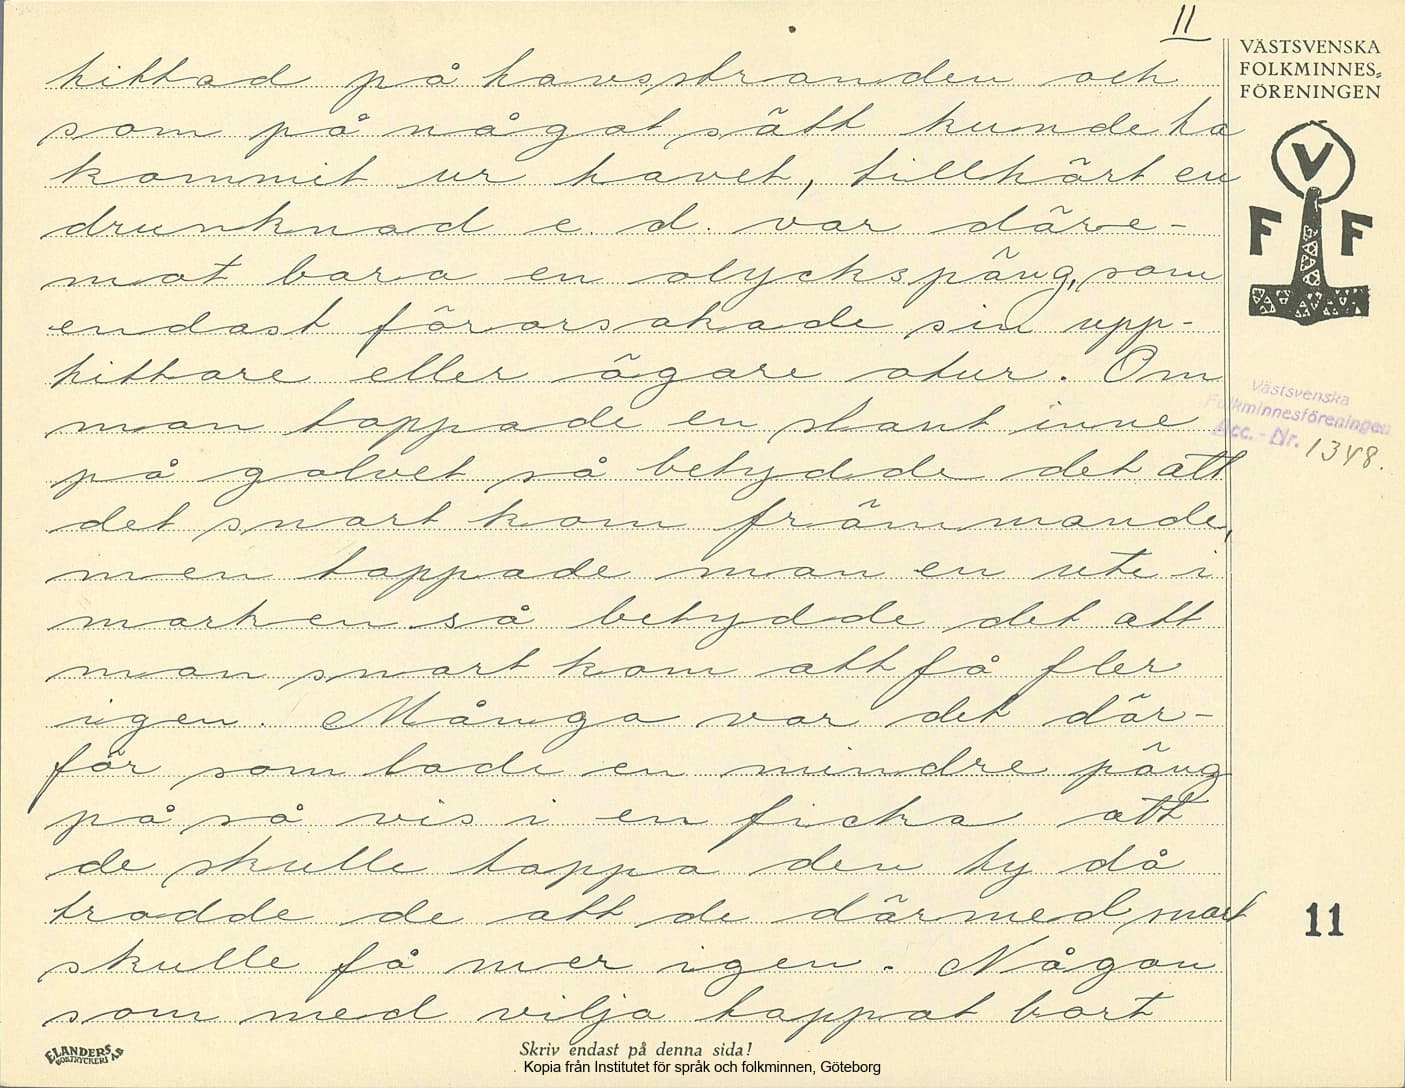 11
hittad på havsstranden och
som på något sätt kunde ha
kommit ur havet, tillhört en
drunknad e. d. var däre-
mot bara en olyckspäng, som
endast förorsakade sin upp-
hittare eller ägare otur. Om
man tappade en slant inne
på golvet så betydde det att
det snart kom främmande,
men tappade man en ute i
marken så betydde det att
man snart kom att få fler
igen. Många var det där-
för som lade en mindre päng
på så vis i en ficka att
de skulle tappa den ty då
trodde de att de därmed snart
skulle få mer igen. Någon
som med vilja tappat bort
VÄSTSVENSKA
FOLKMINNES-
FÖRENINGEN
V
F F
Västsvenska
Folkminnesföreningen
Acc. - Nr. 1348.
11
ELANDERS
BOKTRYCKERI AB
Skriv endast på denna sida!
Kopia från Institutet för språk och folkminnen, Göteborg